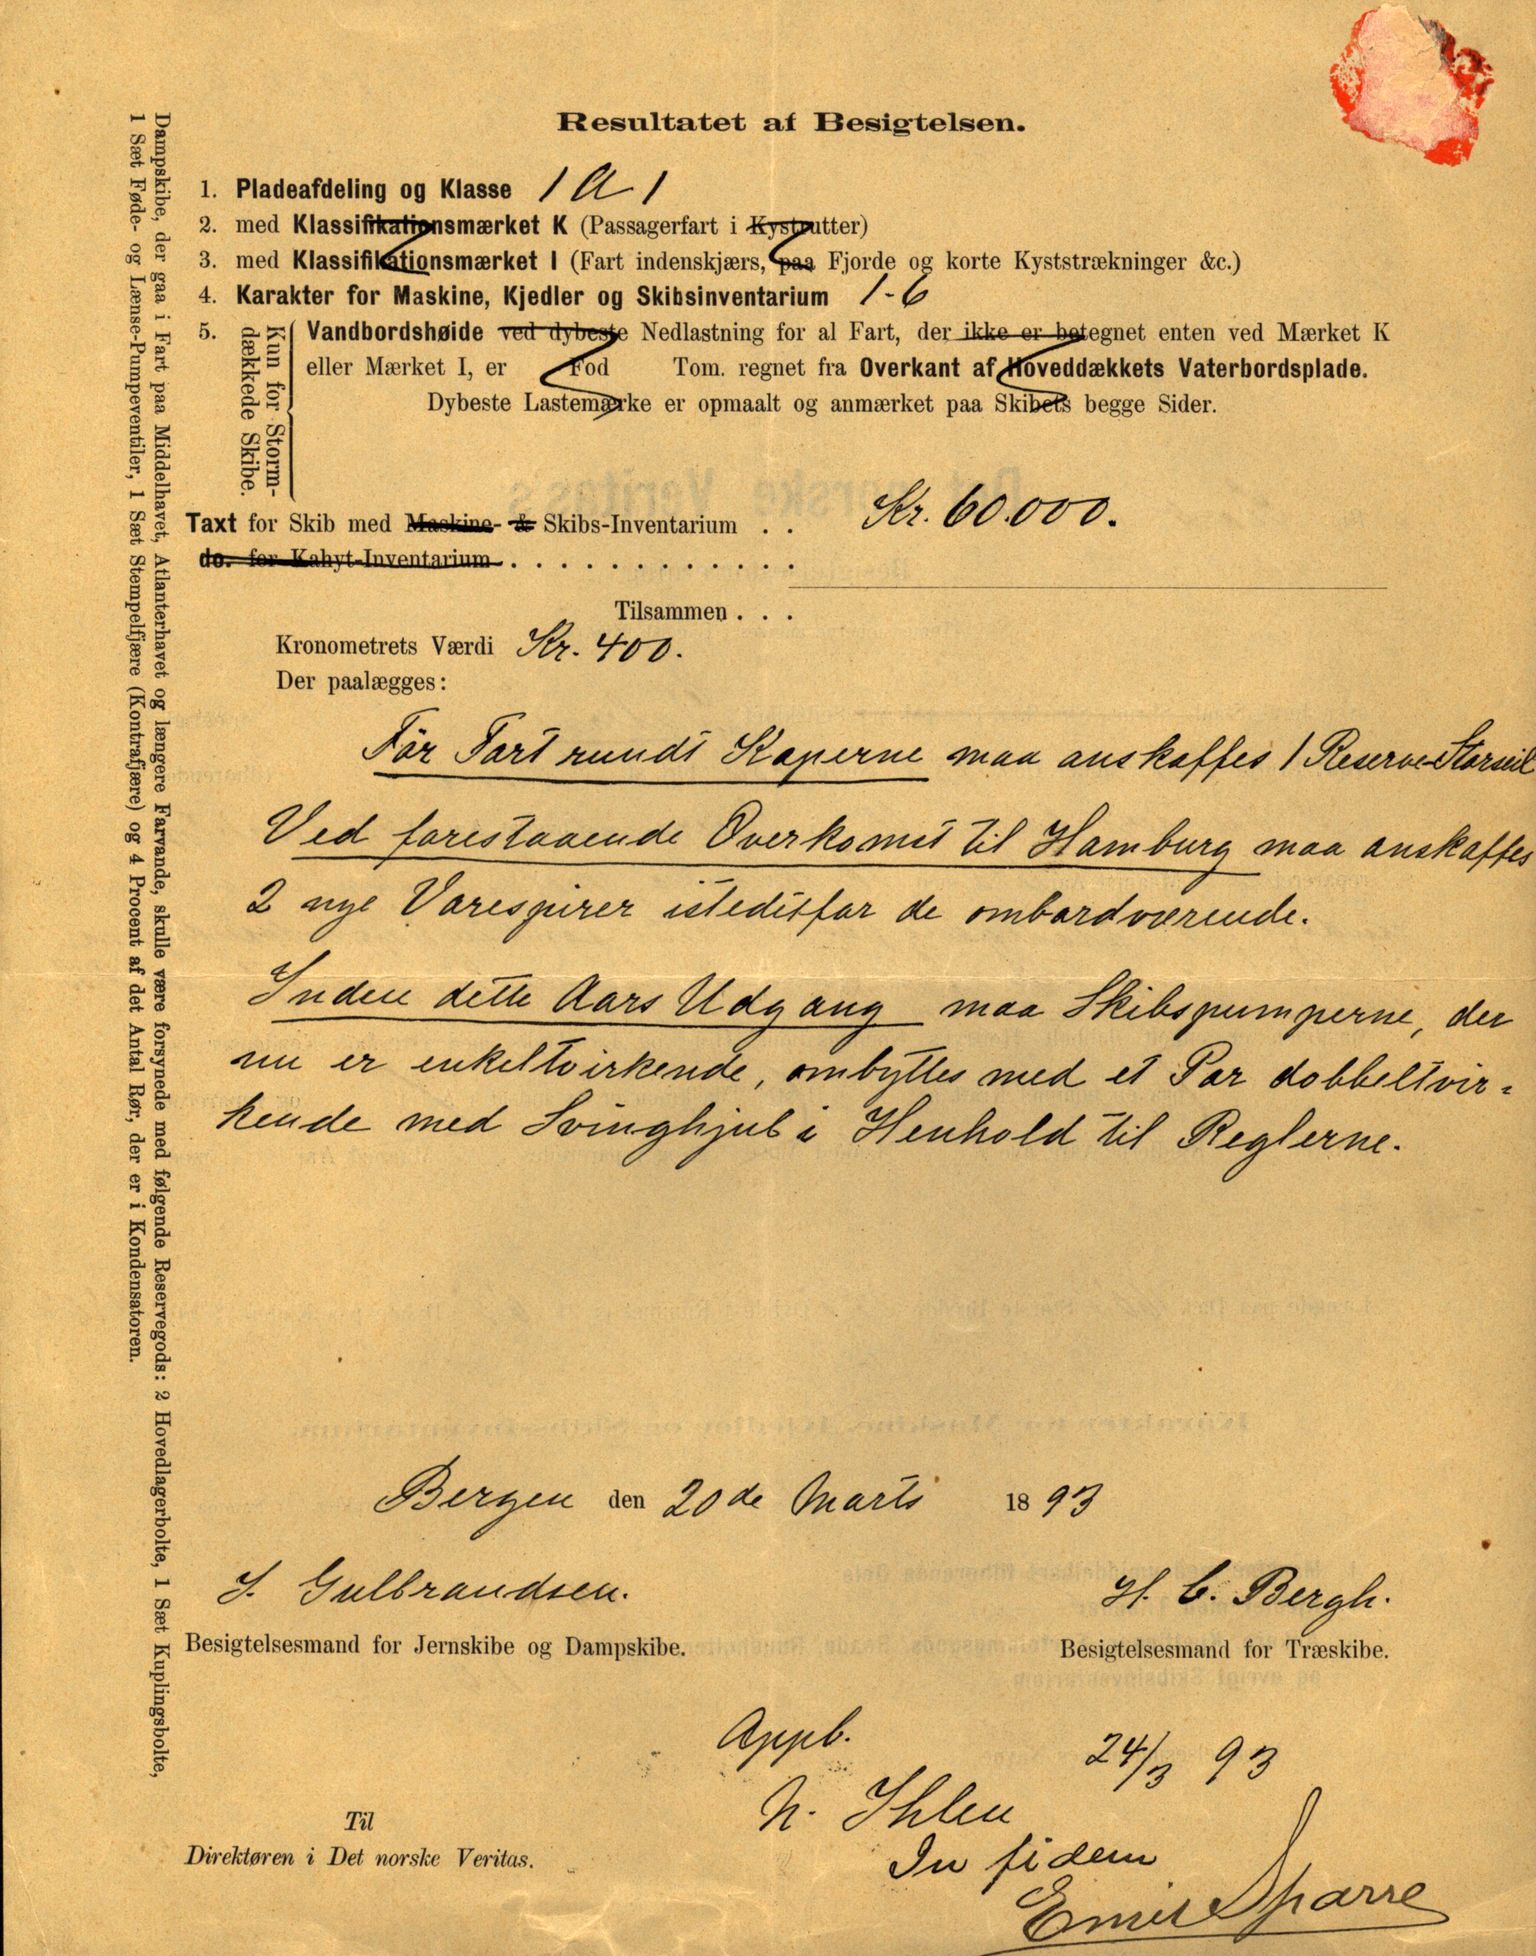 Resultatet af Besigtelsen.
1. Pladeafdeling og Klasse 1 A 1
2. med Klassifikationsmærket K (Passagerfart i Kystrutter)
3. med Klassifikationsmærket I (Fart indenskjærs, paa Fjorde og korte Kyststrækninger &c.)
4. Karakter for Maskine, Kjedler og Skibsinventarium 1-6
5. Kun for Storm-
dækkede Skibe.
Vandbordshøide ved dybeste Nedlastning for al Fart, der ikke er betegnet enten ved Mærket K
eller Mærket I, er Fod Tom. regnet fra Overkant af Hoveddækkets Vaterbordsplade.
Dybeste Lastemærke er opmaalt og anmærket paa Skibets begge Sider.
Taxt for Skib med Maskine- & Skibs-Inventarium . . Kr. 60.000.
do. for Kahyt-Inventarium . . . . . . . . . . . . .
Tilsammen . . .
Kronometrets Værdi Kr. 400.
Der paalægges:
För Fart rundt Kaperne maa anskaffes 1 Reserve-Storseil
Ved forestaaende Overkomst til Hamburg maa anskaffes
2 nye Varespirer istedetfor de ombordværende.
Inden dette Aars Udgang maa Skibspumperne, der
nu er enkeltvirkende, ombyttes med et Par dobbeltvir=
kende med Svinghjul i Henhold til Reglerne.
Bergen den 20de Marts 1893
J. Gulbrandsen.
Besigtelsesmand for Jernskibe og Dampskibe.
H. C. Bergh.
Besigtelsesmand for Træskibe.
Appb. 24/3 93
N. Ihlen
In fidem
Emil Sparre
Til
Direktøren i Det norske Veritas.
Dampskibe, der gaa i Fart paa Middelhavet, Atlanterhavet og længere Farvande, skulle være forsynede med følgende Reservegods: 2 Hovedlagerbolte, 1 Sæt Kuplingsbolte,
1 Sæt Føde- og Lænse-Pumpeventiler, 1 Sæt Stempelfjære (Kontrafjære) og 4 Procent af det Antal Rør, der er i Kondensatoren.